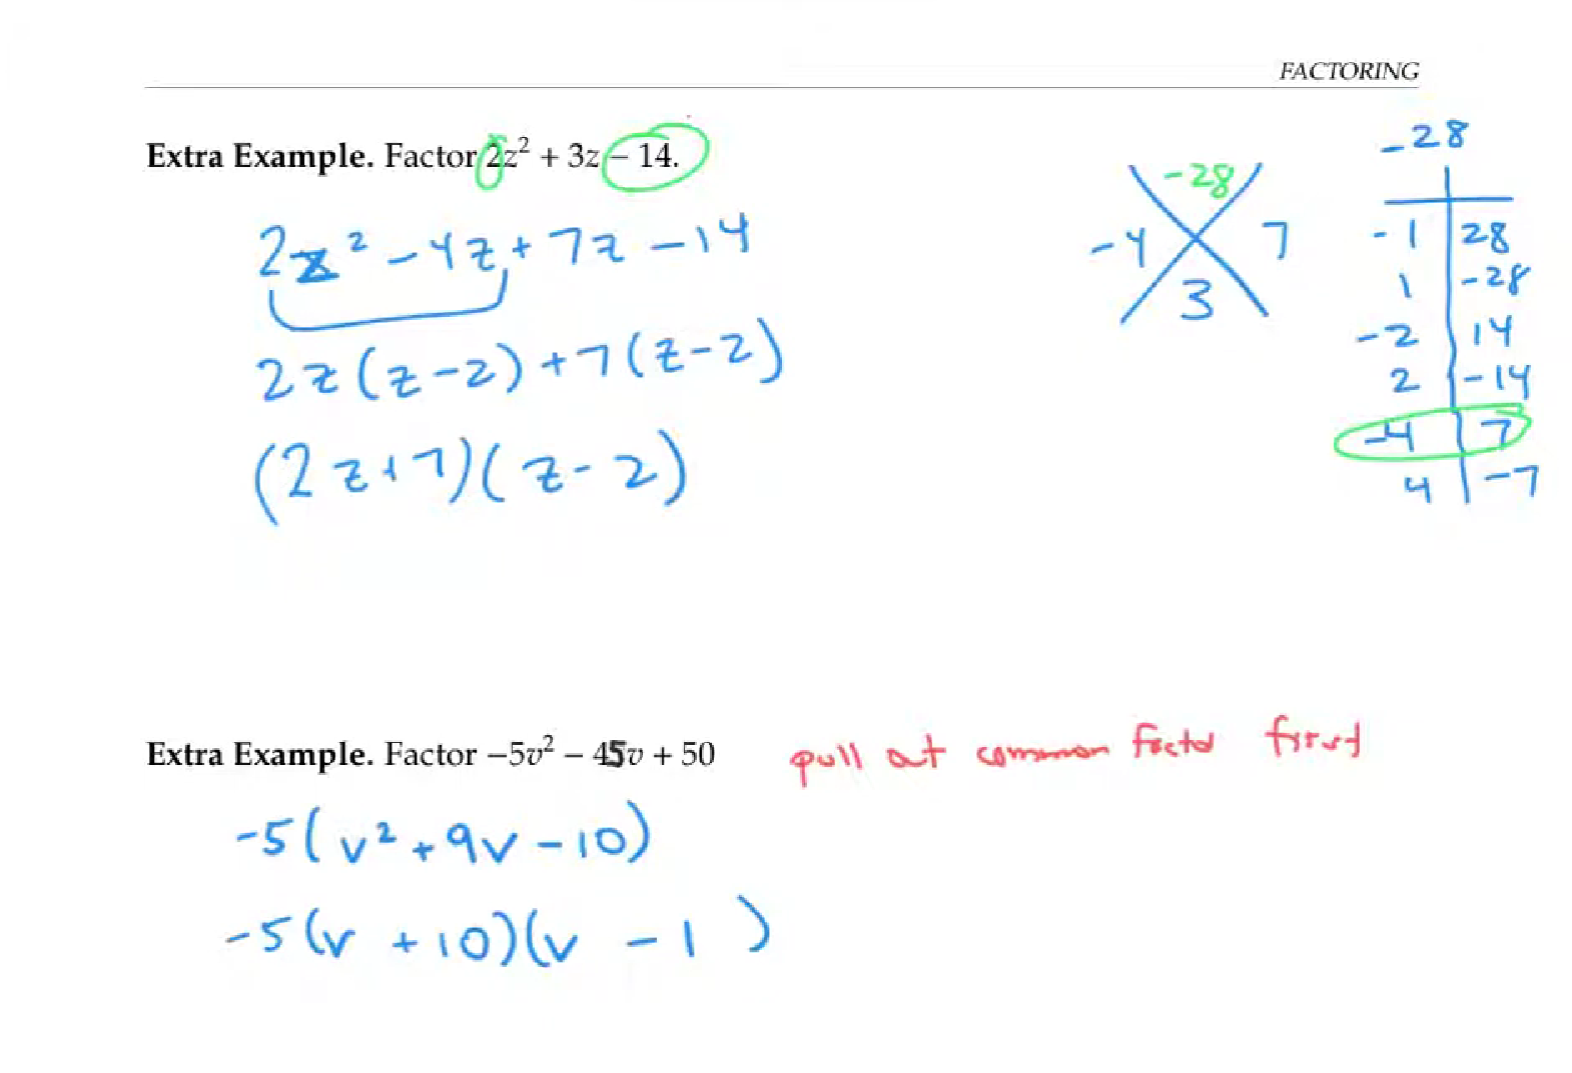 FACTORING
Extra Example. Factor 2z² + 3z − 14.
2z² − 4z + 7z − 14
2z(z−2) + 7(z−2)
(2z+7)(z−2)
−28
−4 7
3
−28
−1 28
1 −28
−2 14
2 −14
−4 7
4 −7
Extra Example. Factor −5v² − 45v + 50
pull out common factor first
−5(v² + 9v − 10)
−5(v + 10)(v − 1)